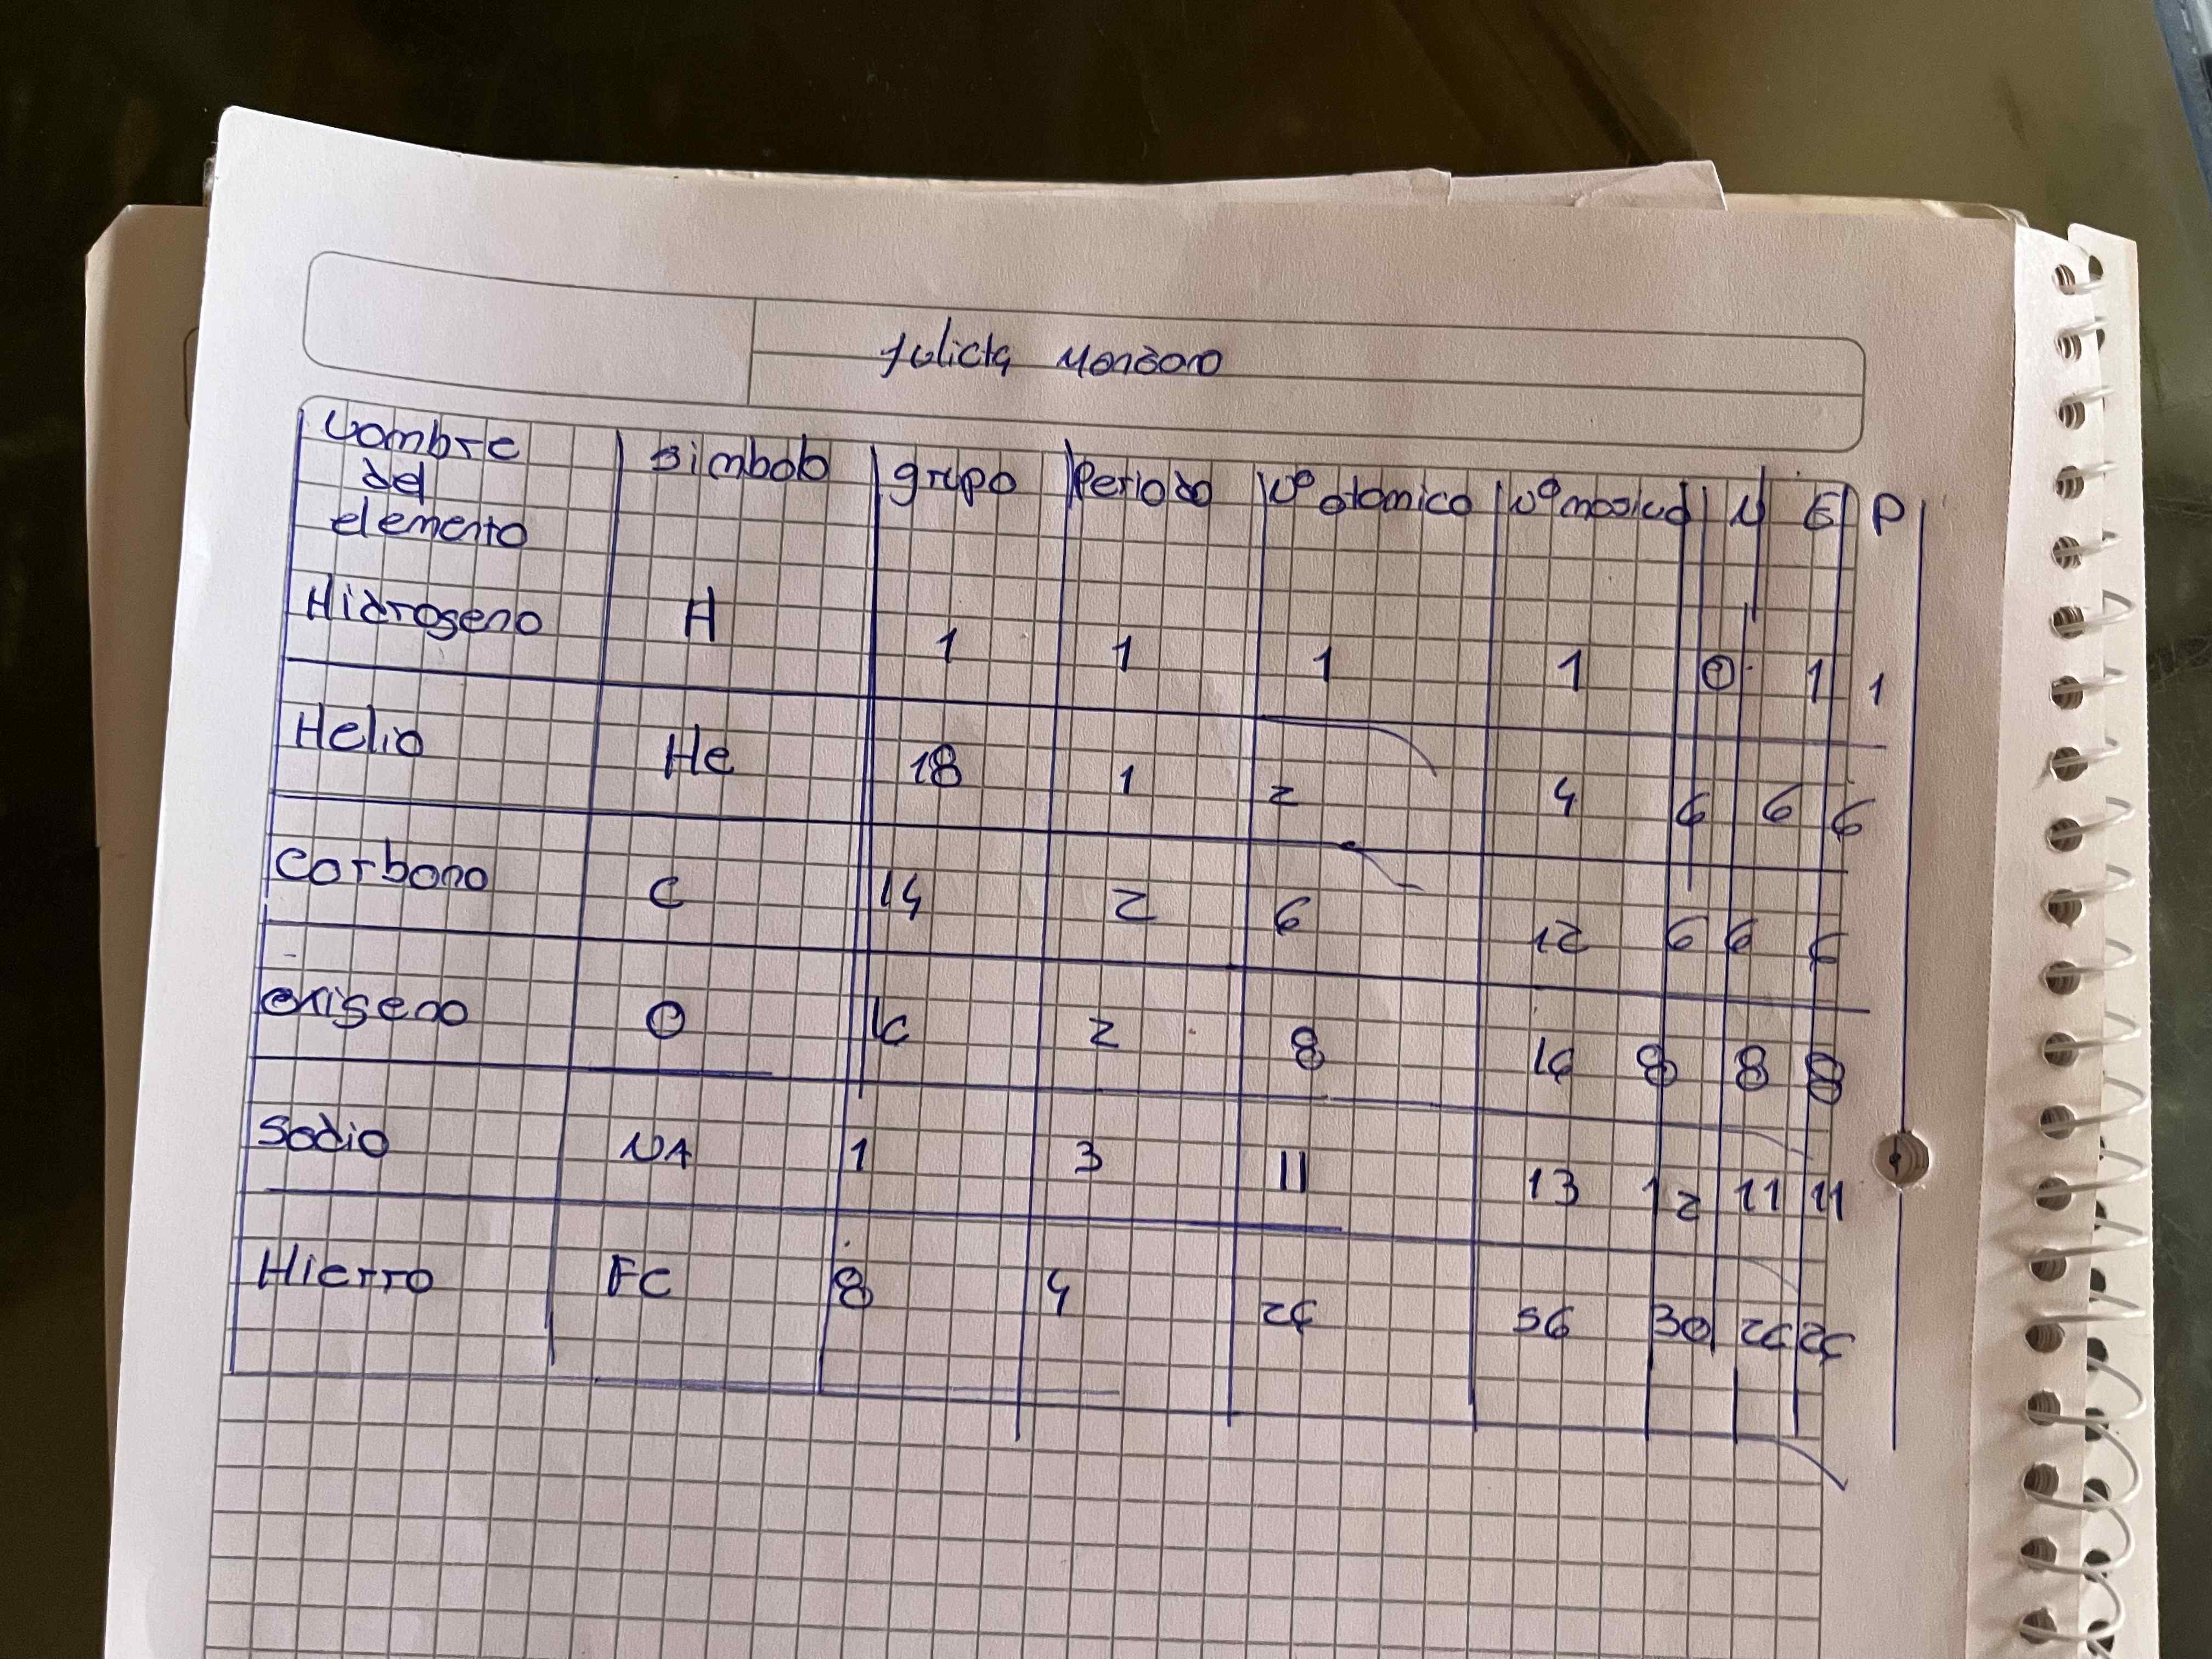 Julieta Monzoro
Nombre del elemento simbolo grupo Periodo Nº atomico Nº N E P
Hidrogeno H 1 1 1 1 0 1 1
Helio He 18 1 2 4 6 6 6
Carbono C 14 2 6 12 6 6 6
oxigeno O 16 2 8 16 8 8 8
Sodio NA 1 3 11 13 12 11 11
Hierro Fe 8 4 26 56 30 26 26